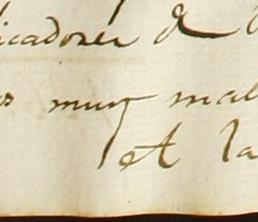 icadores de
os muy mal
A la